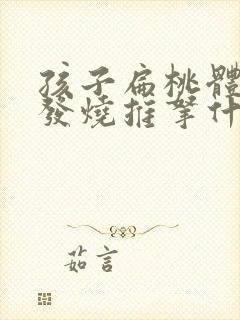 孩子扁桃體
發燒推拏什
茹言